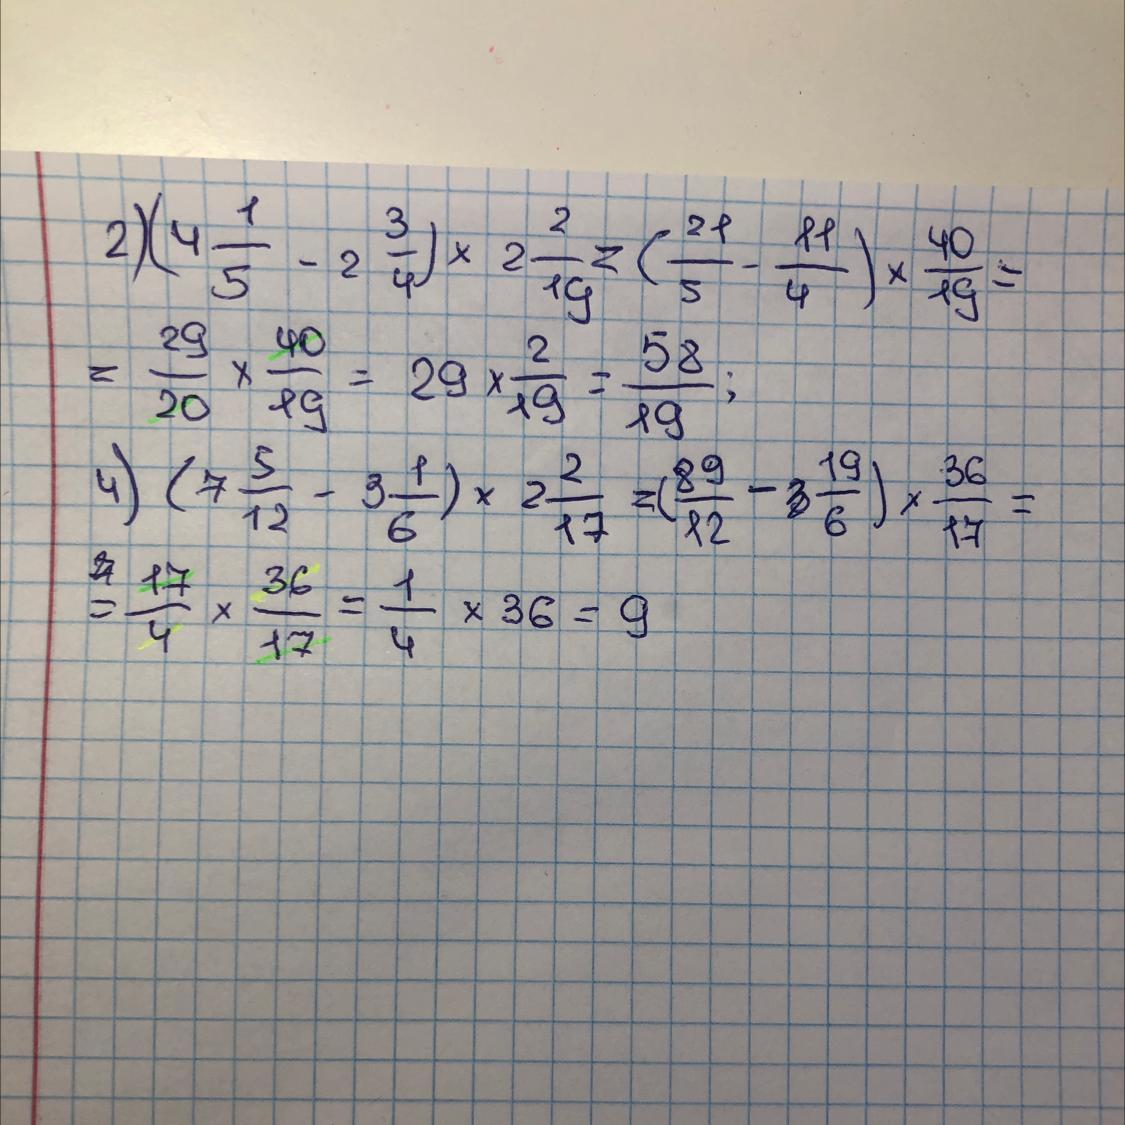 2) (4 1/5 - 2 3/4) × 2 2/19 = (21/5 - 11/4) × 40/19 =
= 29/20 × 40/19 = 29 × 2/19 = 58/19;
4) (7 5/12 - 3 1/6) × 2 2/17 = (89/12 - 19/6) × 36/17 =
= 17/4 × 36/17 = 1/4 × 36 = 9